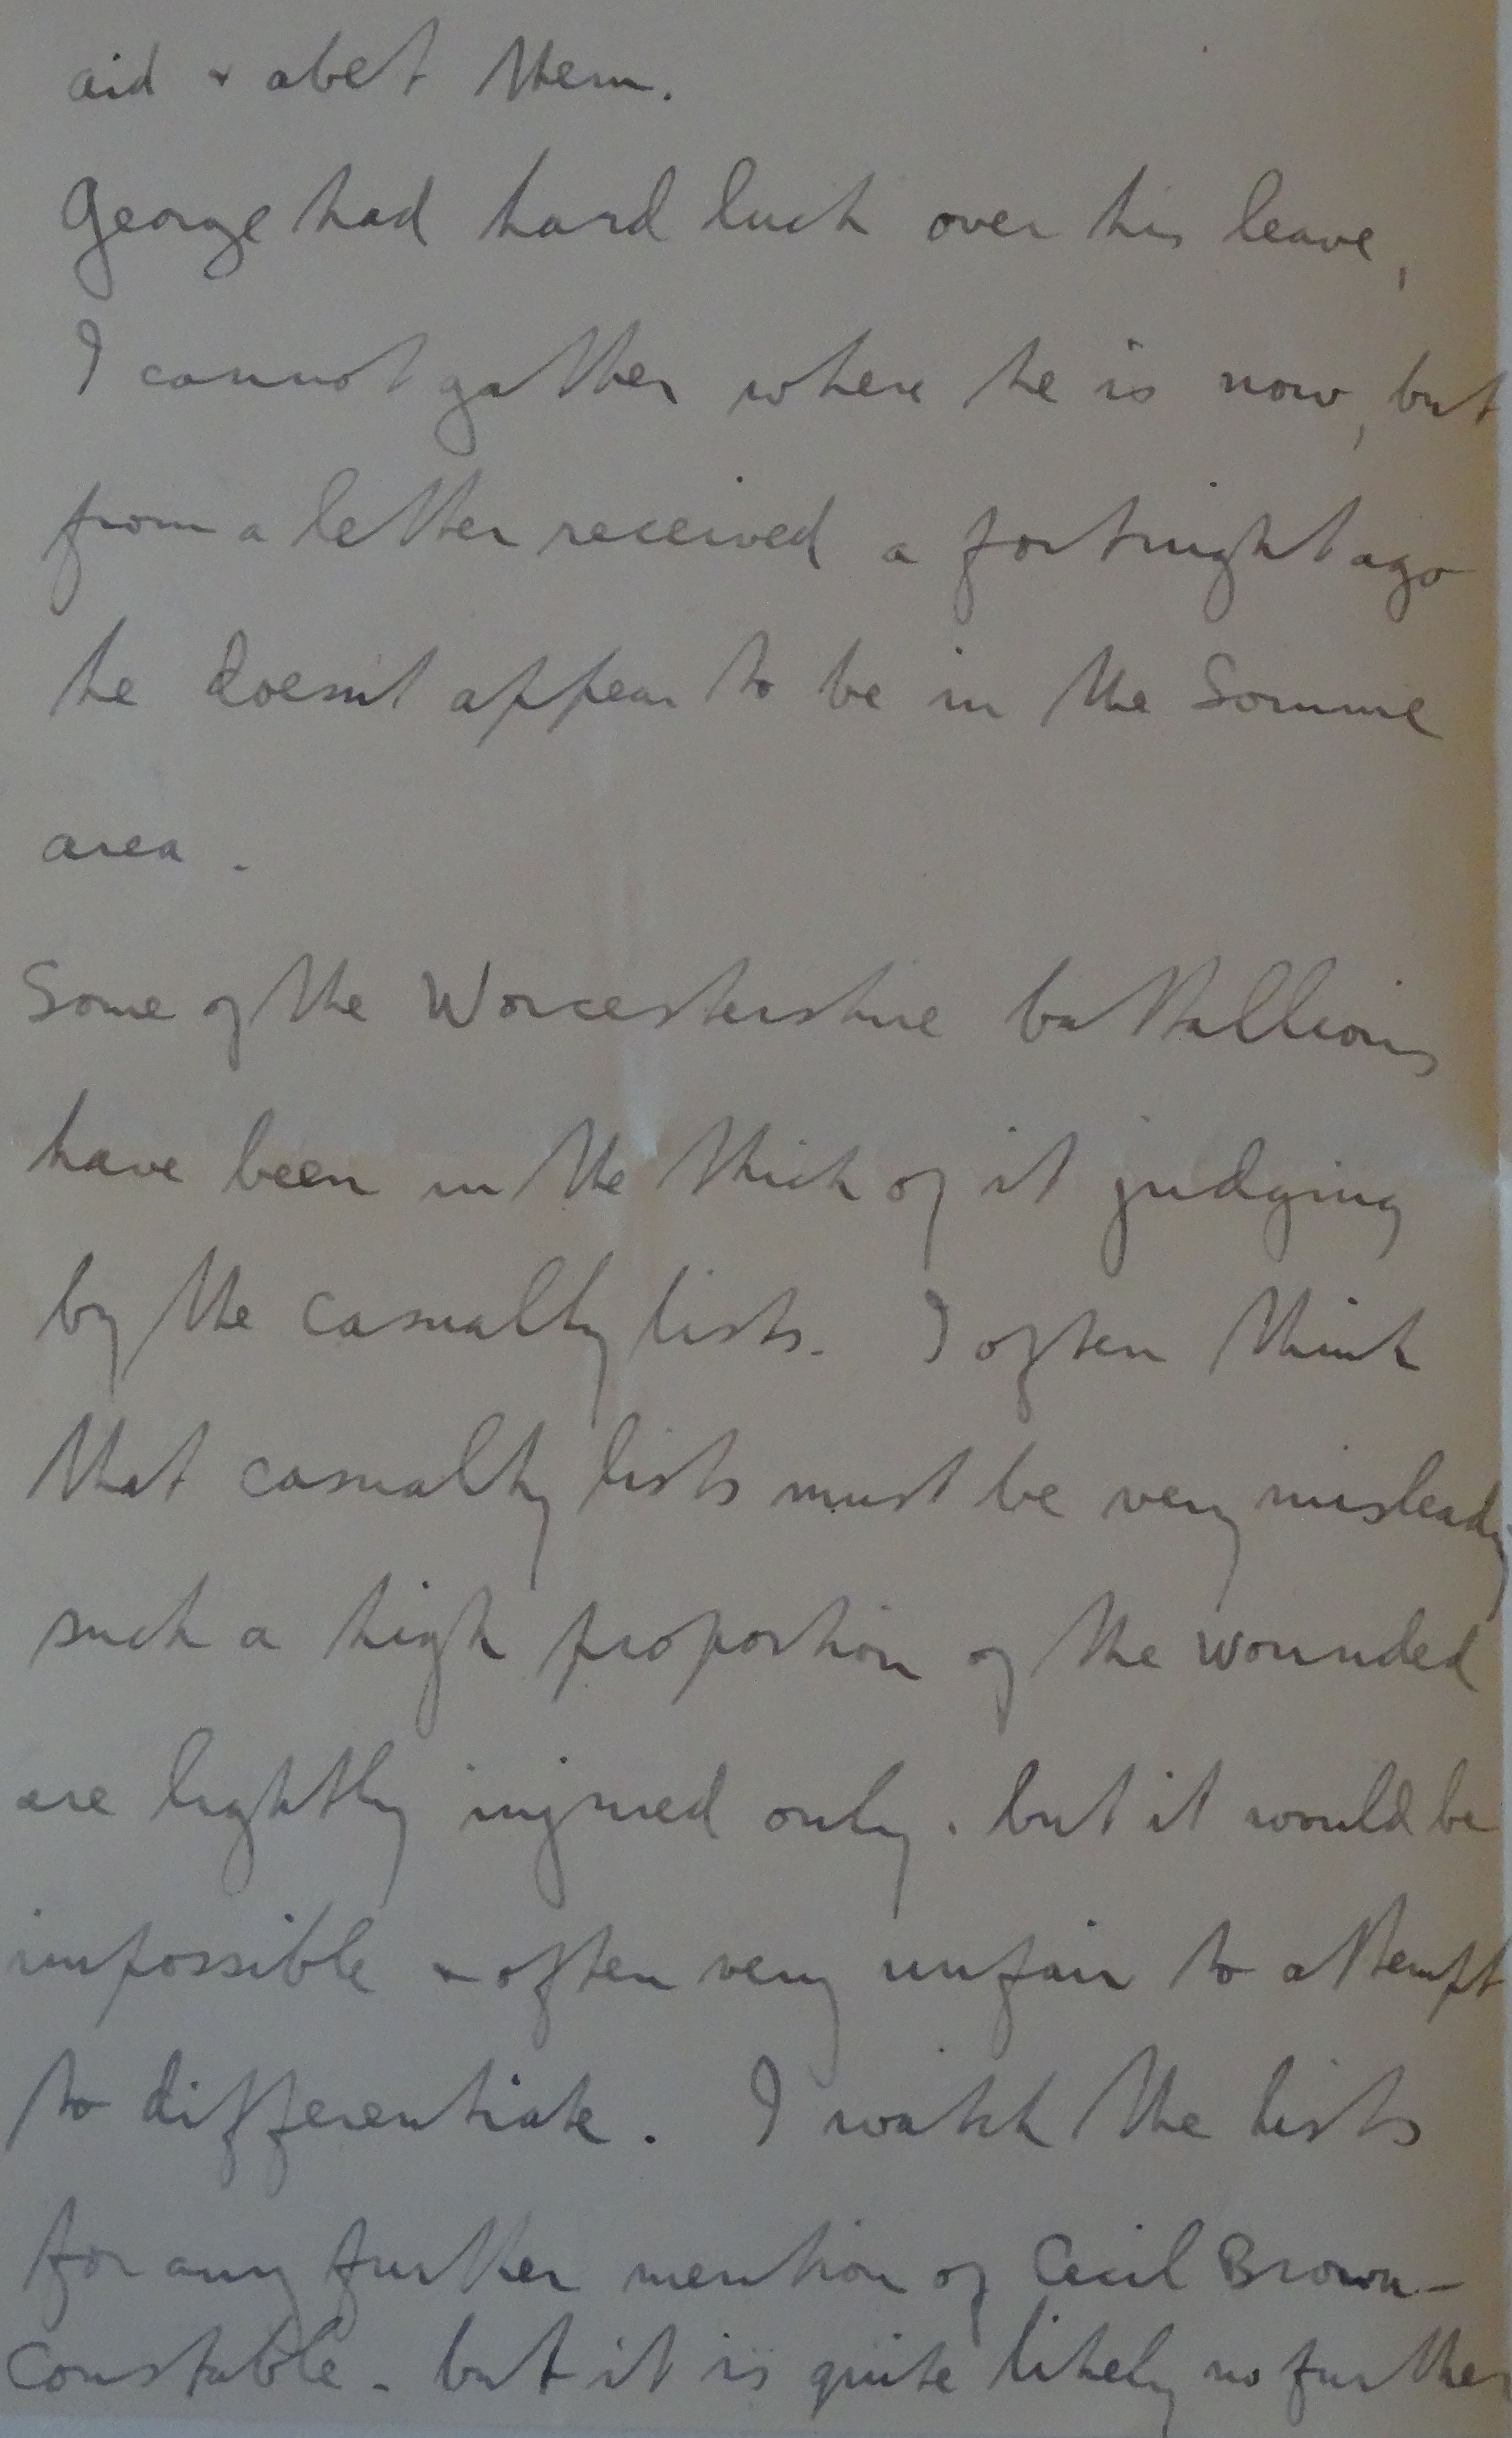 aid & abet them.
George had hard luck over his leave,
I cannot gather where he is now, but
from a letter received a fortnight ago
he doesn't appear to be in the Somme
area.
Some of the Worcestershire battallions
have been in the thick of it judging
by the casualty lists. I often think
that casualty lists must be very misleading
such a high proportion of the wounded
are lightly injured only. but it would be
impossible & often very unfair to attempt
to differentiate. I watch the lists
for any further mention of Cecil Brown-
Constable. but it is quite likely no further